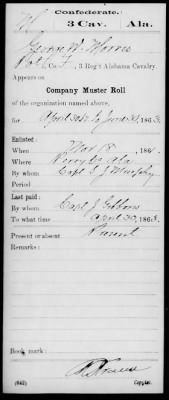 Confederate.
M 3 Cav. Ala.
George W. Morris
Co. F, 3 Reg't Alabama Cavalry
Appears on
Company Muster Roll
of the organization named above,
for April 30 to June 30, 1863.
Enlisted:
When Mar 18, 186
Where Perry Co Ala
By whom Capt
Period
Last paid:
By whom Capt J Gibbons
To what time April 30, 186
Present or absent Present
Remarks:
Book mark:
(642) Copyist.